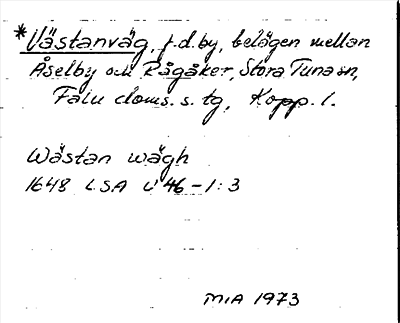 *Västanväg, f.d. by, belägen mellan
Åselby och Rågåker, Stora Tuna sn,
Falu doms. s. tg, Kopp. l.
Wästan wägh
1648 LSA U 46-1:3
MIA 1973